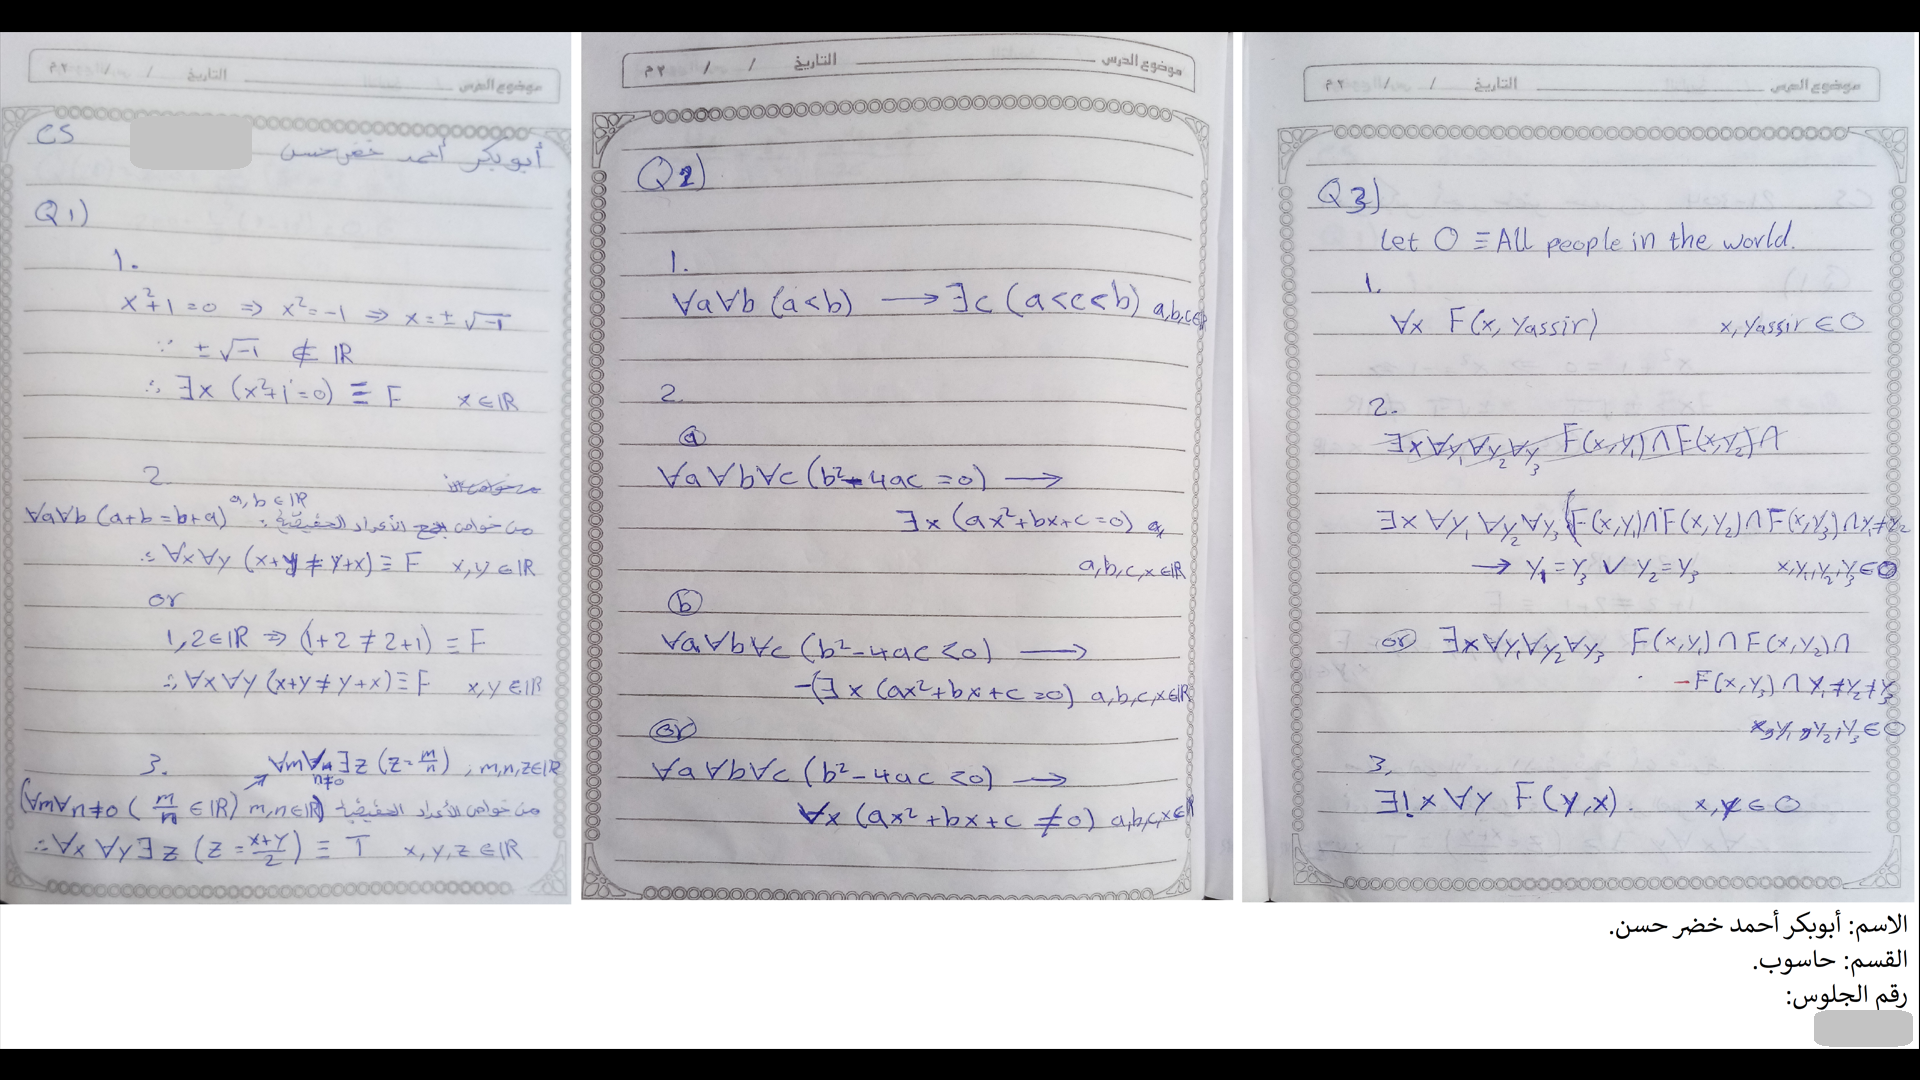 موضوع الدرس التاريخ / / ٢٠م
CS أبوبكر أحمد خضر حسن
Q1)
1.
x²+1=0 ⇒ x²=-1 ⇒ x=±√-1
∵ ±√-1 ∉ ℝ
∴ ∃x (x²+1=0) ≡ F x∈ℝ
2.
a,b∈ℝ
∀a∀b (a+b=b+a) من خواص الأعداد الحقيقية:
∴ ∀x∀y (x+y≠y+x) ≡ F x,y∈ℝ
or
1,2∈ℝ ⇒ (1+2≠2+1) ≡ F
∴ ∀x∀y (x+y≠y+x) ≡ F x,y∈ℝ
3. ∀m∀n ∃z (z=m/n) ; m,n,z∈ℝ
n≠0
(∀m∀n≠0 (m/n ∈ℝ) m,n∈ℝ) من خواص الأعداد الحقيقية
∴ ∀x ∀y ∃z (z=x+y/2) ≡ T x,y,z∈ℝ
موضوع الدرس التاريخ / / ٢٠م
Q2)
1.
∀a∀b (a<b) → ∃c (a<c<b) a,b,c∈
2.
ⓐ
∀a∀b∀c (b²-4ac=0) →
∃x (ax²+bx+c=0) a,
a,b,c,x∈ℝ
ⓑ
∀a∀b∀c (b²-4ac<0) →
-(∃x (ax²+bx+c=0) a,b,c,x∈ℝ
or
∀a∀b∀c (b²-4ac<0) →
∀x (ax²+bx+c≠0) a,b,c,x∈ℝ
موضوع الدرس التاريخ / / ٢٠م
Q3)
Let O ≡ All people in the world.
1.
∀x F(x, Yassir) x, Yassir∈O
2.
∃x∀y₁∀y₂∀y₃ F(x,y₁)∩F(x,y₂)∩
∃x ∀y₁ ∀y₂ ∀y₃ (F(x,y₁)∩F(x,y₂)∩F(x,y₃)∩y₁≠y₂
→ y₁=y₃ ∨ y₂=y₃ x,y₁,y₂,y₃∈O
or ∃x∀y₁∀y₂∀y₃ F(x,y₁)∩F(x,y₂)∩
-F(x,y₃)∩y₁≠y₂≠y₃
x,y₁,y₂,y₃∈O
3.
∃!x∀y F(y,x). x,y∈O
الاسم: أبوبكر أحمد خضر حسن.
القسم: حاسوب.
رقم الجلوس: